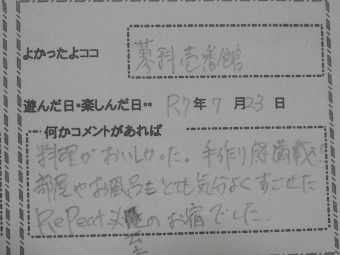 よかったよココ 蓼科壱番館
遊んだ日・楽しんだ日‥ R7年7月23日
何かコメントがあれば
料理がおいしかった。手作り感満載で
部屋やお風呂もとても気分よくすごせた
Repeat のお宿でした。